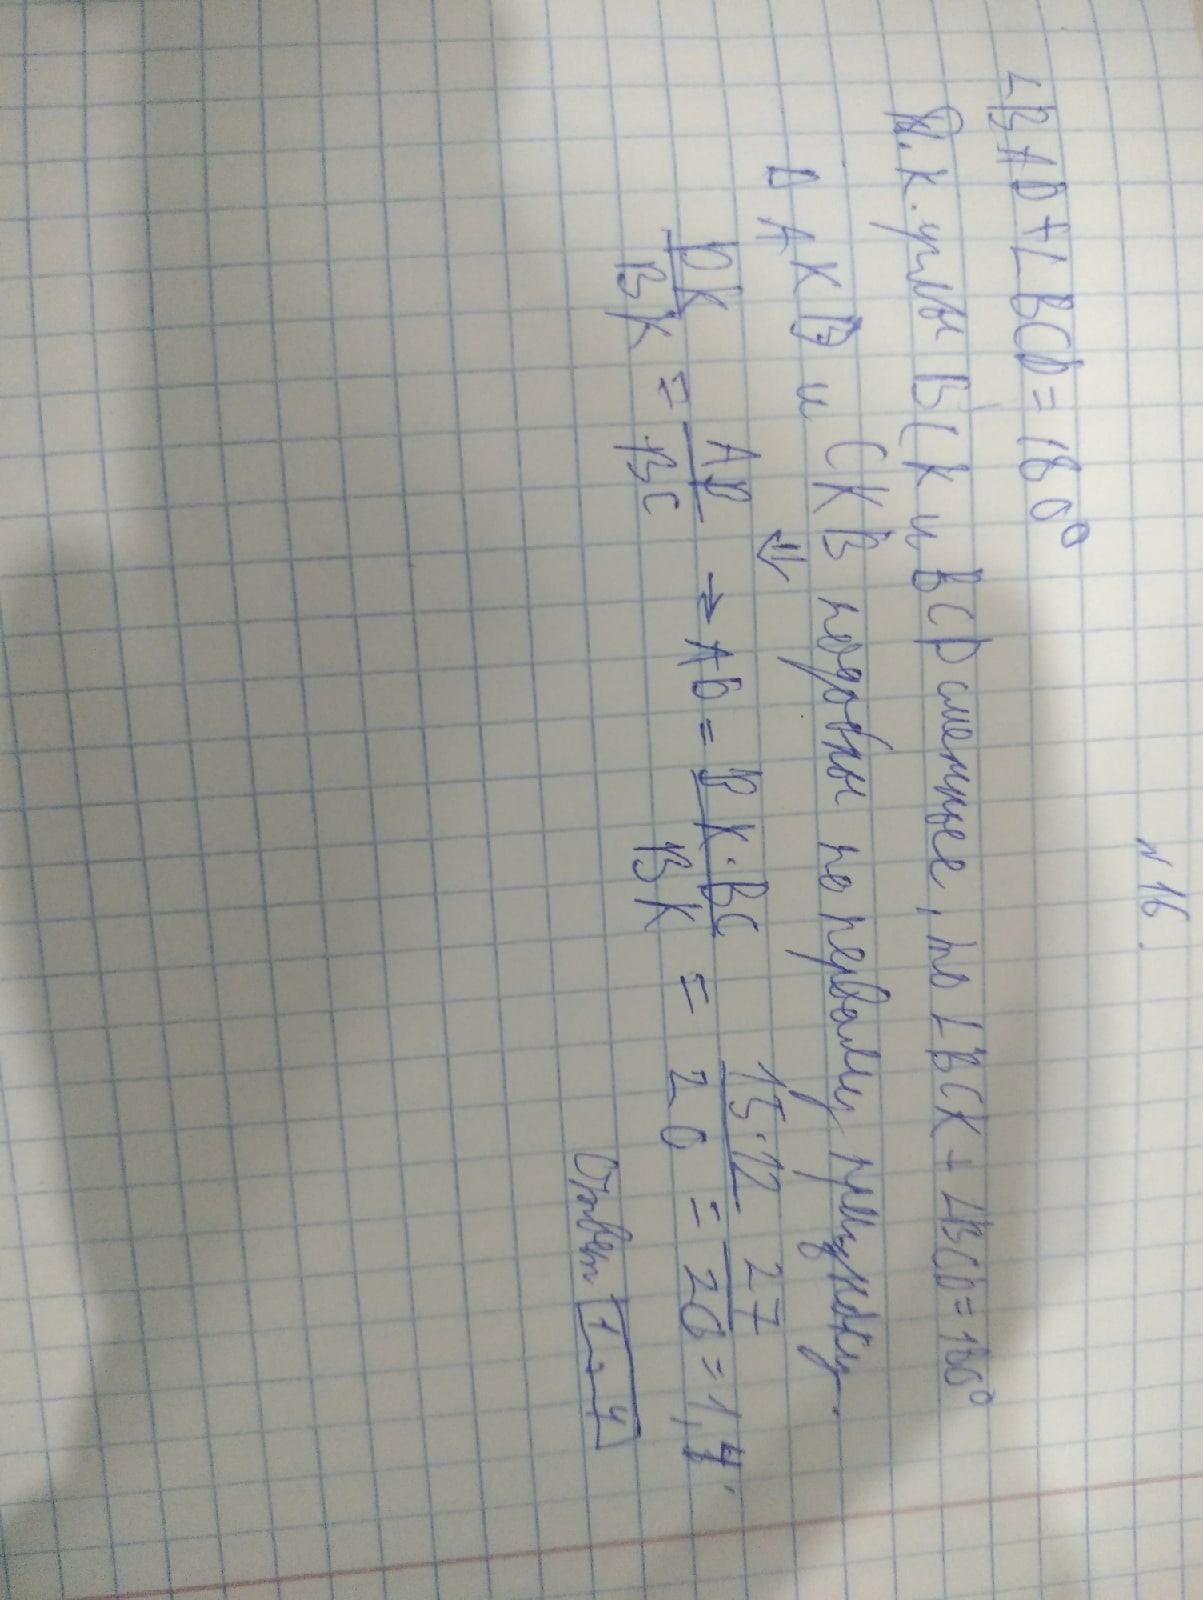 N 16.
∠BAD + ∠BCD = 180°
Т.к. углы BCK и BCD смежные, то ∠BCK + ∠BCD = 180°
Δ AKD и CKB подобны по первому признаку.
⇓
DK/BK = AD/BC → AD = DK·BC/BK = 15·12/20 = 27/20 = 1,4
Ответ 1,4